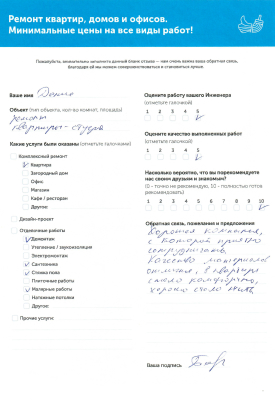 Ремонт квартир, домов и офисов.
Минимальные цены на все виды работ!
Пожалуйста, внимательно заполните данный бланк отзыва — нам очень важна ваша обратная связь,
благодаря ей мы можем совершенствоваться и становиться лучше.
Ваше имя Денис
Объект (тип объекта, кол-во комнат, площадь)
Ремонт
квартиры-студия
Какие услуги были оказаны (отметьте галочками)
Комплексный ремонт
Квартира
Загородный дом
Офис
Магазин
Кафе / ресторан
Другое:
Дизайн-проект
Отделочные работы
Демонтаж
Утепление / звукоизоляция
Электромонтаж
Сантехника
Стяжка пола
Плиточные работы
Малярные работы
Натяжные потолки
Другое:
Прочие услуги:
Оцените работу вашего Инженера
(отметьте галочкой)
1 2 3 4 5
Оцените качество выполненных работ
(отметьте галочкой)
1 2 3 4 5
Насколько вероятно, что вы порекомендуете
нас своим друзьям и знакомым?
(0 – точно не рекомендую, 10 – полностью готов
рекомендовать)
1 2 3 4 5 6 7 8 9 10
Обратная связь, пожелания и предложения
Хорошая компания,
с которой приятно
сотрудничать
Качество материалов
отличное, в квартире
стало комфортно,
хорошо стало жить
Ваша подпись